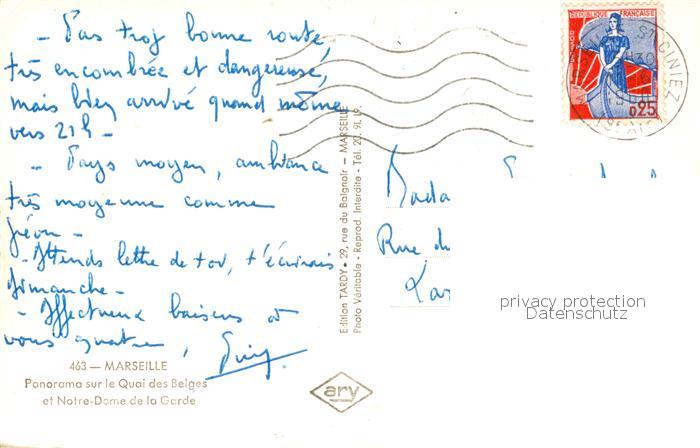 - Pas trop bonne route,
très encombrée et dangereuse,
mais bien arrivé quand même
vers 21h -
- Pays moyen, ambiance
très moyenne comme
- Attends lettre de toi, t'écrirais
dimanche -
- Affectueux baisers à
vous quatre,
463 — MARSEILLE
Panorama sur le Quai des Belges
et Notre-Dame de la Garde
Edition TARDY • 29, rue du Baignoir — MARSEILLE
Photo Véritable - Reprod. Interdite - Tél. 20.91.19.
ary
REPUBLIQUE FRANÇAISE
POSTES
0,25
Rue du
privacy protection
Datenschutz